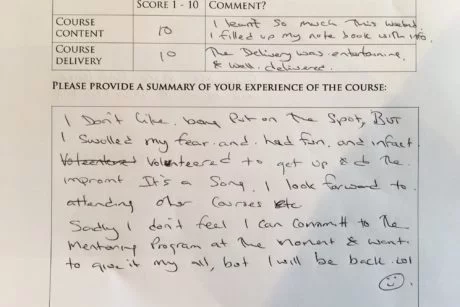 SCORE 1 - 10 COMMENT?
COURSE CONTENT 10 I learnt so much this weekend
I filled up my note book with info.
COURSE DELIVERY 10 The Delivery was entertaining
& well delivered.
PLEASE PROVIDE A SUMMARY OF YOUR EXPERIENCE OF THE COURSE:
I Don't like being Put on The Spot, BUT
I Swolled my fear and had fun, and infact
Volenteered to get up & do the
impromt It's a Song. I look forward to
attending other courses etc
Sadly I don't feel I can Committ to the
Mentoring Program at the moment & want
to give it my all, but I will be back. lol